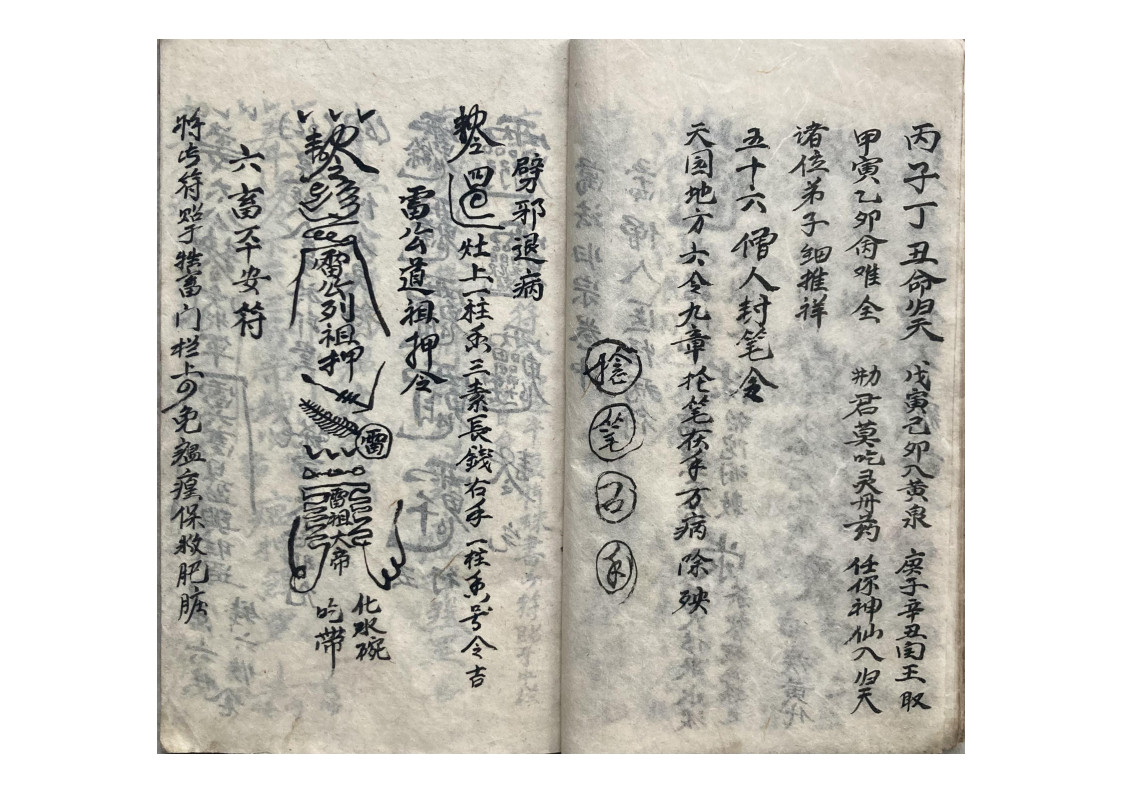 丙子丁丑命归天 戊寅己卯入黄泉 庚子辛丑闰王取
甲寅乙卯命难全 劝君莫吃灵丹药 任你神仙入归天
诸位弟子细推祥
五十六 僧人封笔令
天国地方六令九章 笔在手万病除殃
笔
劈邪退病
敕令 灶上一柱香三素長錢右手一柱香号令吉
雷公道祖押令
敕令
雷公列祖押
雷
雷祖大帝
化水碗
吃带
六畜平安符
将此符贴于牲畜门栏上 免瘟瘟保